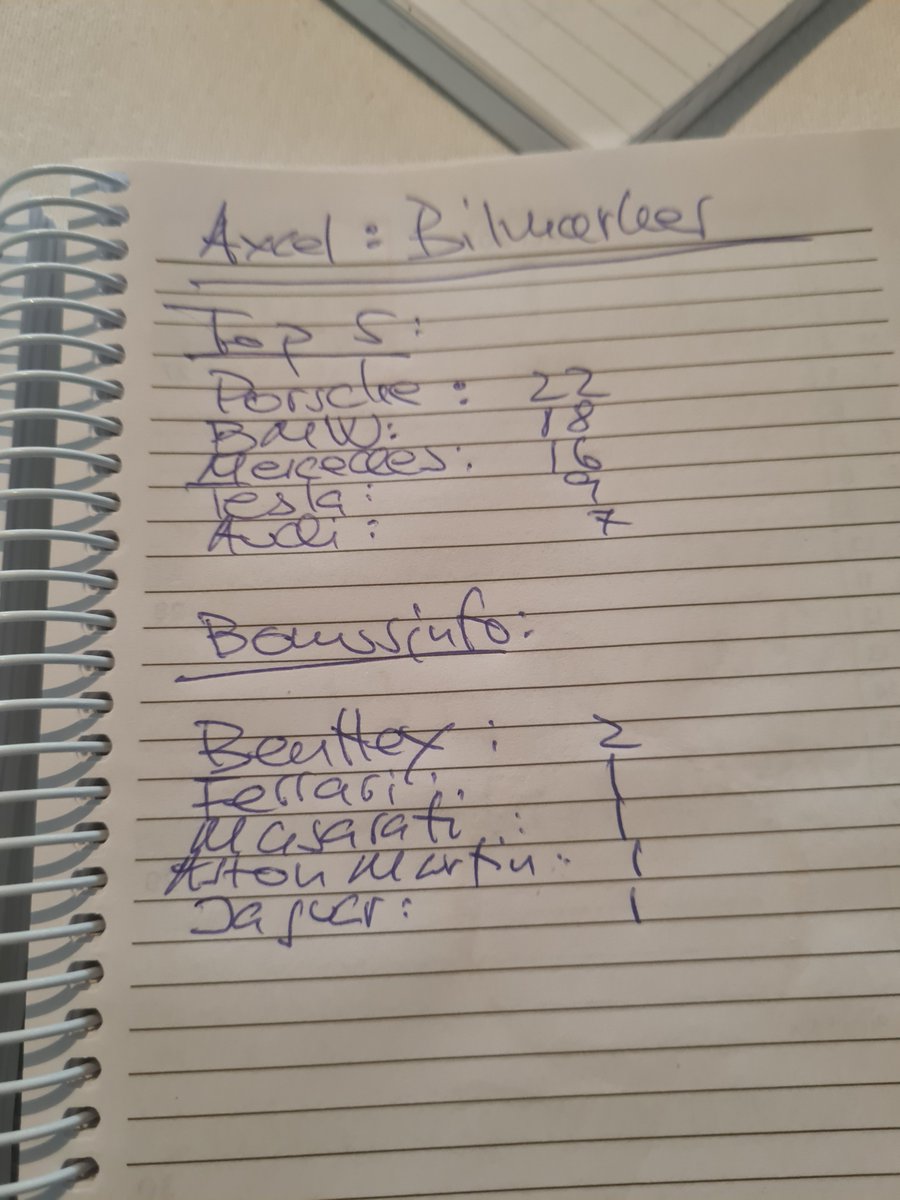 Axel : Bilmerker
Top 5:
Porsche : 22
BMW: 18
Mercedes: 16
Tesla: 9
Audi: 7
Bonusinfo:
Benttey : 2
Ferrari: 1
Masarati : 1
Aston Martin: 1
Jaguar: 1